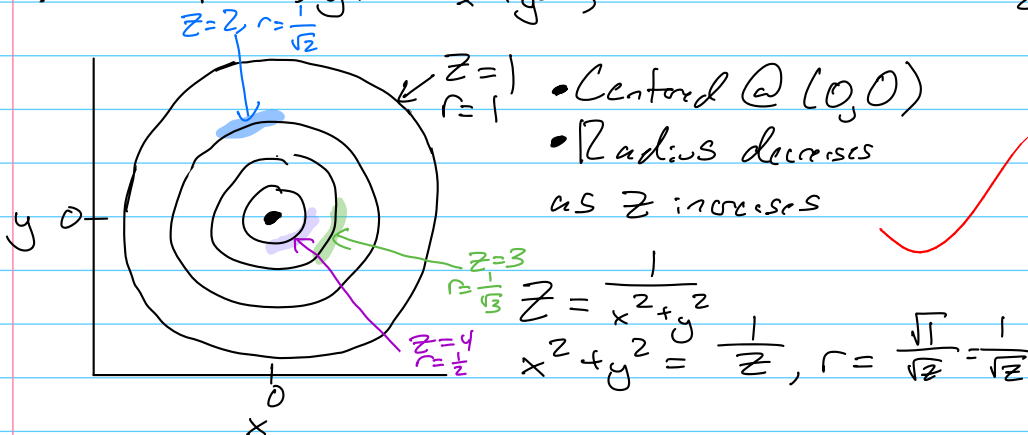 z=2, r=1/√2
z=1
r=1
•Centered @ (0,0)
•Radius decreases
as z increases
y 0
z=3
r=1/√3
z=4
r=1/2
z = 1/(x²+y²)
x²+y² = 1/z, r = √1/√z = 1/√z
0
x